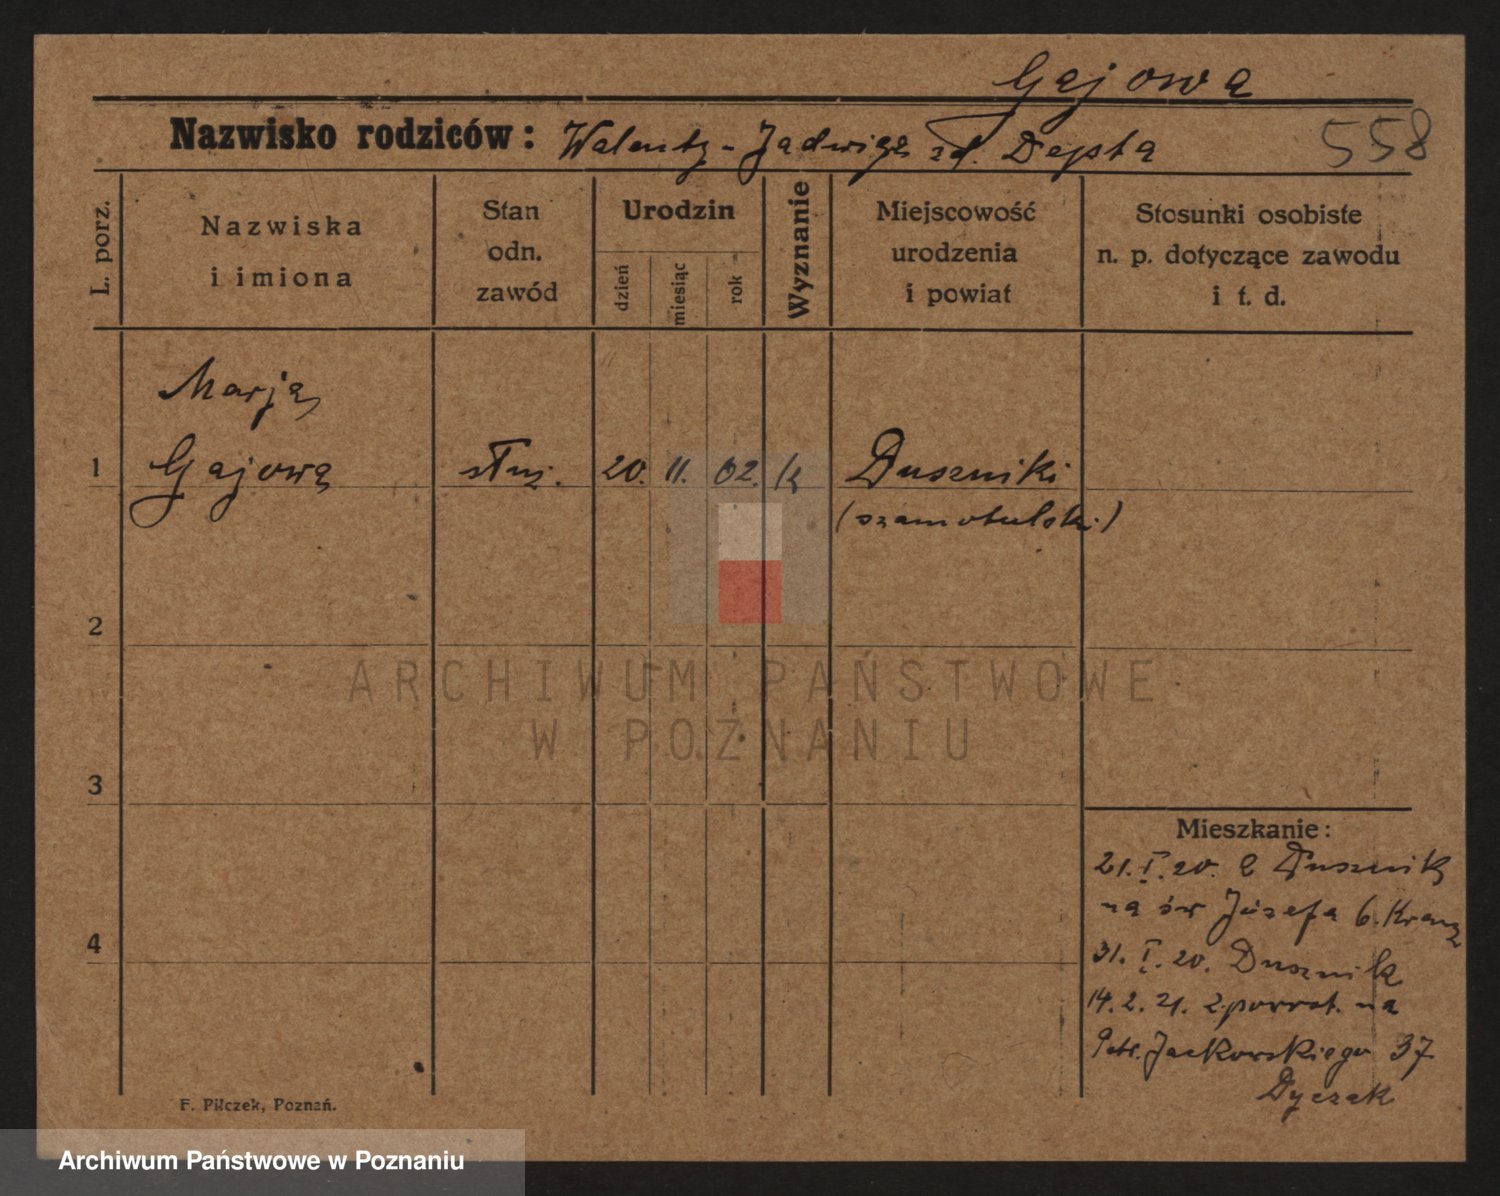 Gajowa
Nazwisko rodziców: Walenty - Jadwiga zd. Depta
558
L. porz.
Nazwiska
i imiona
Stan
odn.
zawód
Urodzin
dzień
miesiąc
rok
Wyznanie
Miejscowość
urodzenia
i powiat
Stosunki osobiste
n. p. dotyczące zawodu
i t. d.
Marja
1 Gajowa służ. 20. 11. 02. k Duszniki
(szamotulski)
2
3
4
ARCHIWUM PAŃSTWOWE
W POZNANIU
Mieszkanie:
21. I. 20. Z Dusznik
na św Józefa 6.
31. I. 20. Dusznik
14. 2. 21. z powrot. na
Jackowskiego 37
Dyczak
F. Pilczek, Poznań.
Archiwum Państwowe w Poznaniu